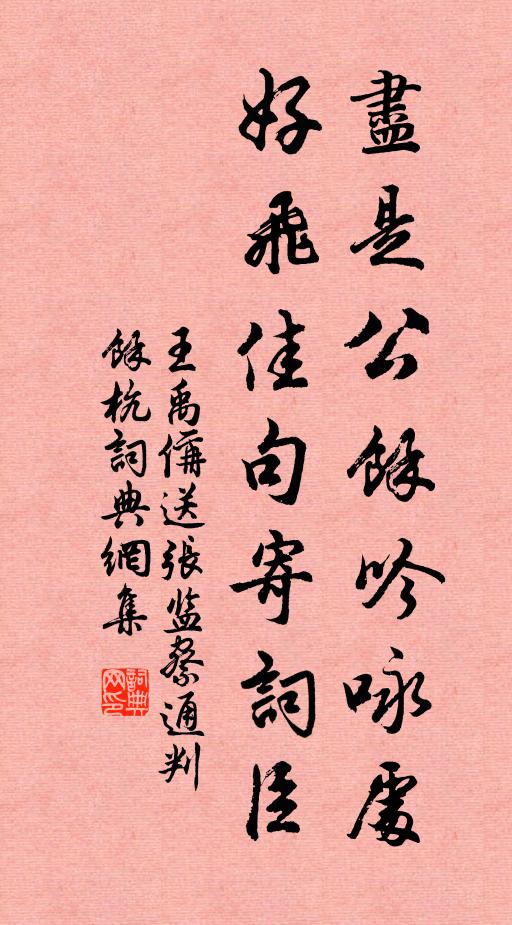 盡是公餘吟咏處
好飛佳句寄詞臣
王禹偁送張监察通判
餘杭詞典網集
詞典网印